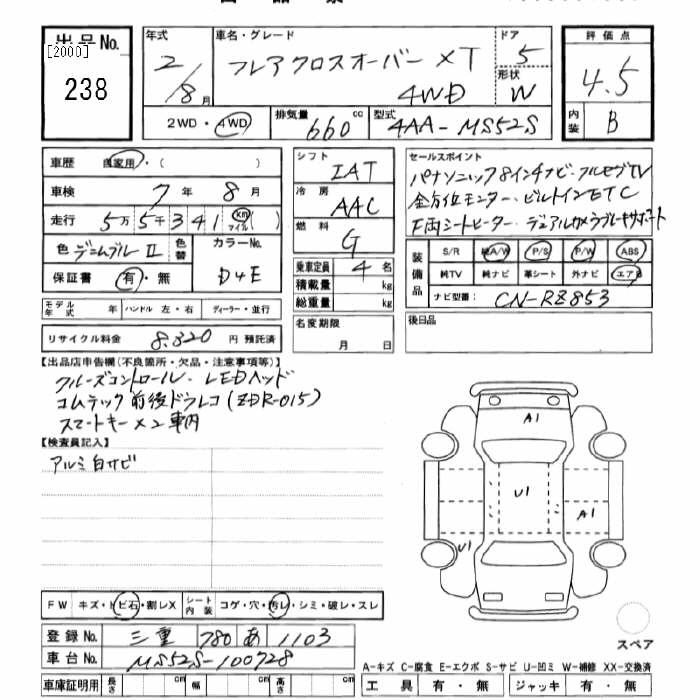 出品No.
[2000]
238
年式 2/8月
車名・グレード フレアクロスオーバー XT 4WD
ドア 5
形状 W
評価点 4.5
内装 B
2WD・4WD
排気量 660 cc
型式 4AA-MS52S
車歴 自家用・( )
車検 7年 8月
走行 5万5千341 km マイル ( )
色 デニムブルーII 色替 カラーNo. D4E
保証書 有・無
シフト IAT
冷房 AAC
燃料 G
乗車定員 4名
積載量 kg
総重量 kg
セールスポイント
パナソニック8インチナビ・フルセグTV
全方位モニター・ビルトインETC
F両シートヒーター・デュアルカメラブレーキサポート
装備品 S/R 純A/W P/S P/W ABS
純TV 純ナビ 革シート 外ナビ エアB
ナビ型番: CN-RZ853
モデル年式 年 ハンドル 左・右 ディーラー・並行
名変期限 月 日
後日品
リサイクル料金 8,320 円 預託済
【出品店申告欄(不良箇所・欠品・注意事項等)】
クルーズコントロール・LEDヘッド
コムテック前後ドラレコ(ZDR-015)
スマートキー×2 車内
【検査員記入】
アルミ白サビ
A1
U1
A1
U1
FW キズ・トビ石・割レX シート内装 コゲ・穴・汚レ・シミ・破レ・スレ
スペア
登録No. 三重 780 あ 1103
車台No. MS52S-100728
A-キズ C-腐食 E-エクボ S-サビ U-凹ミ W-補修 XX-交換済
車庫証明用 長さ cm 幅 cm 高さ cm
工具 有・無 ジャッキ 有・無